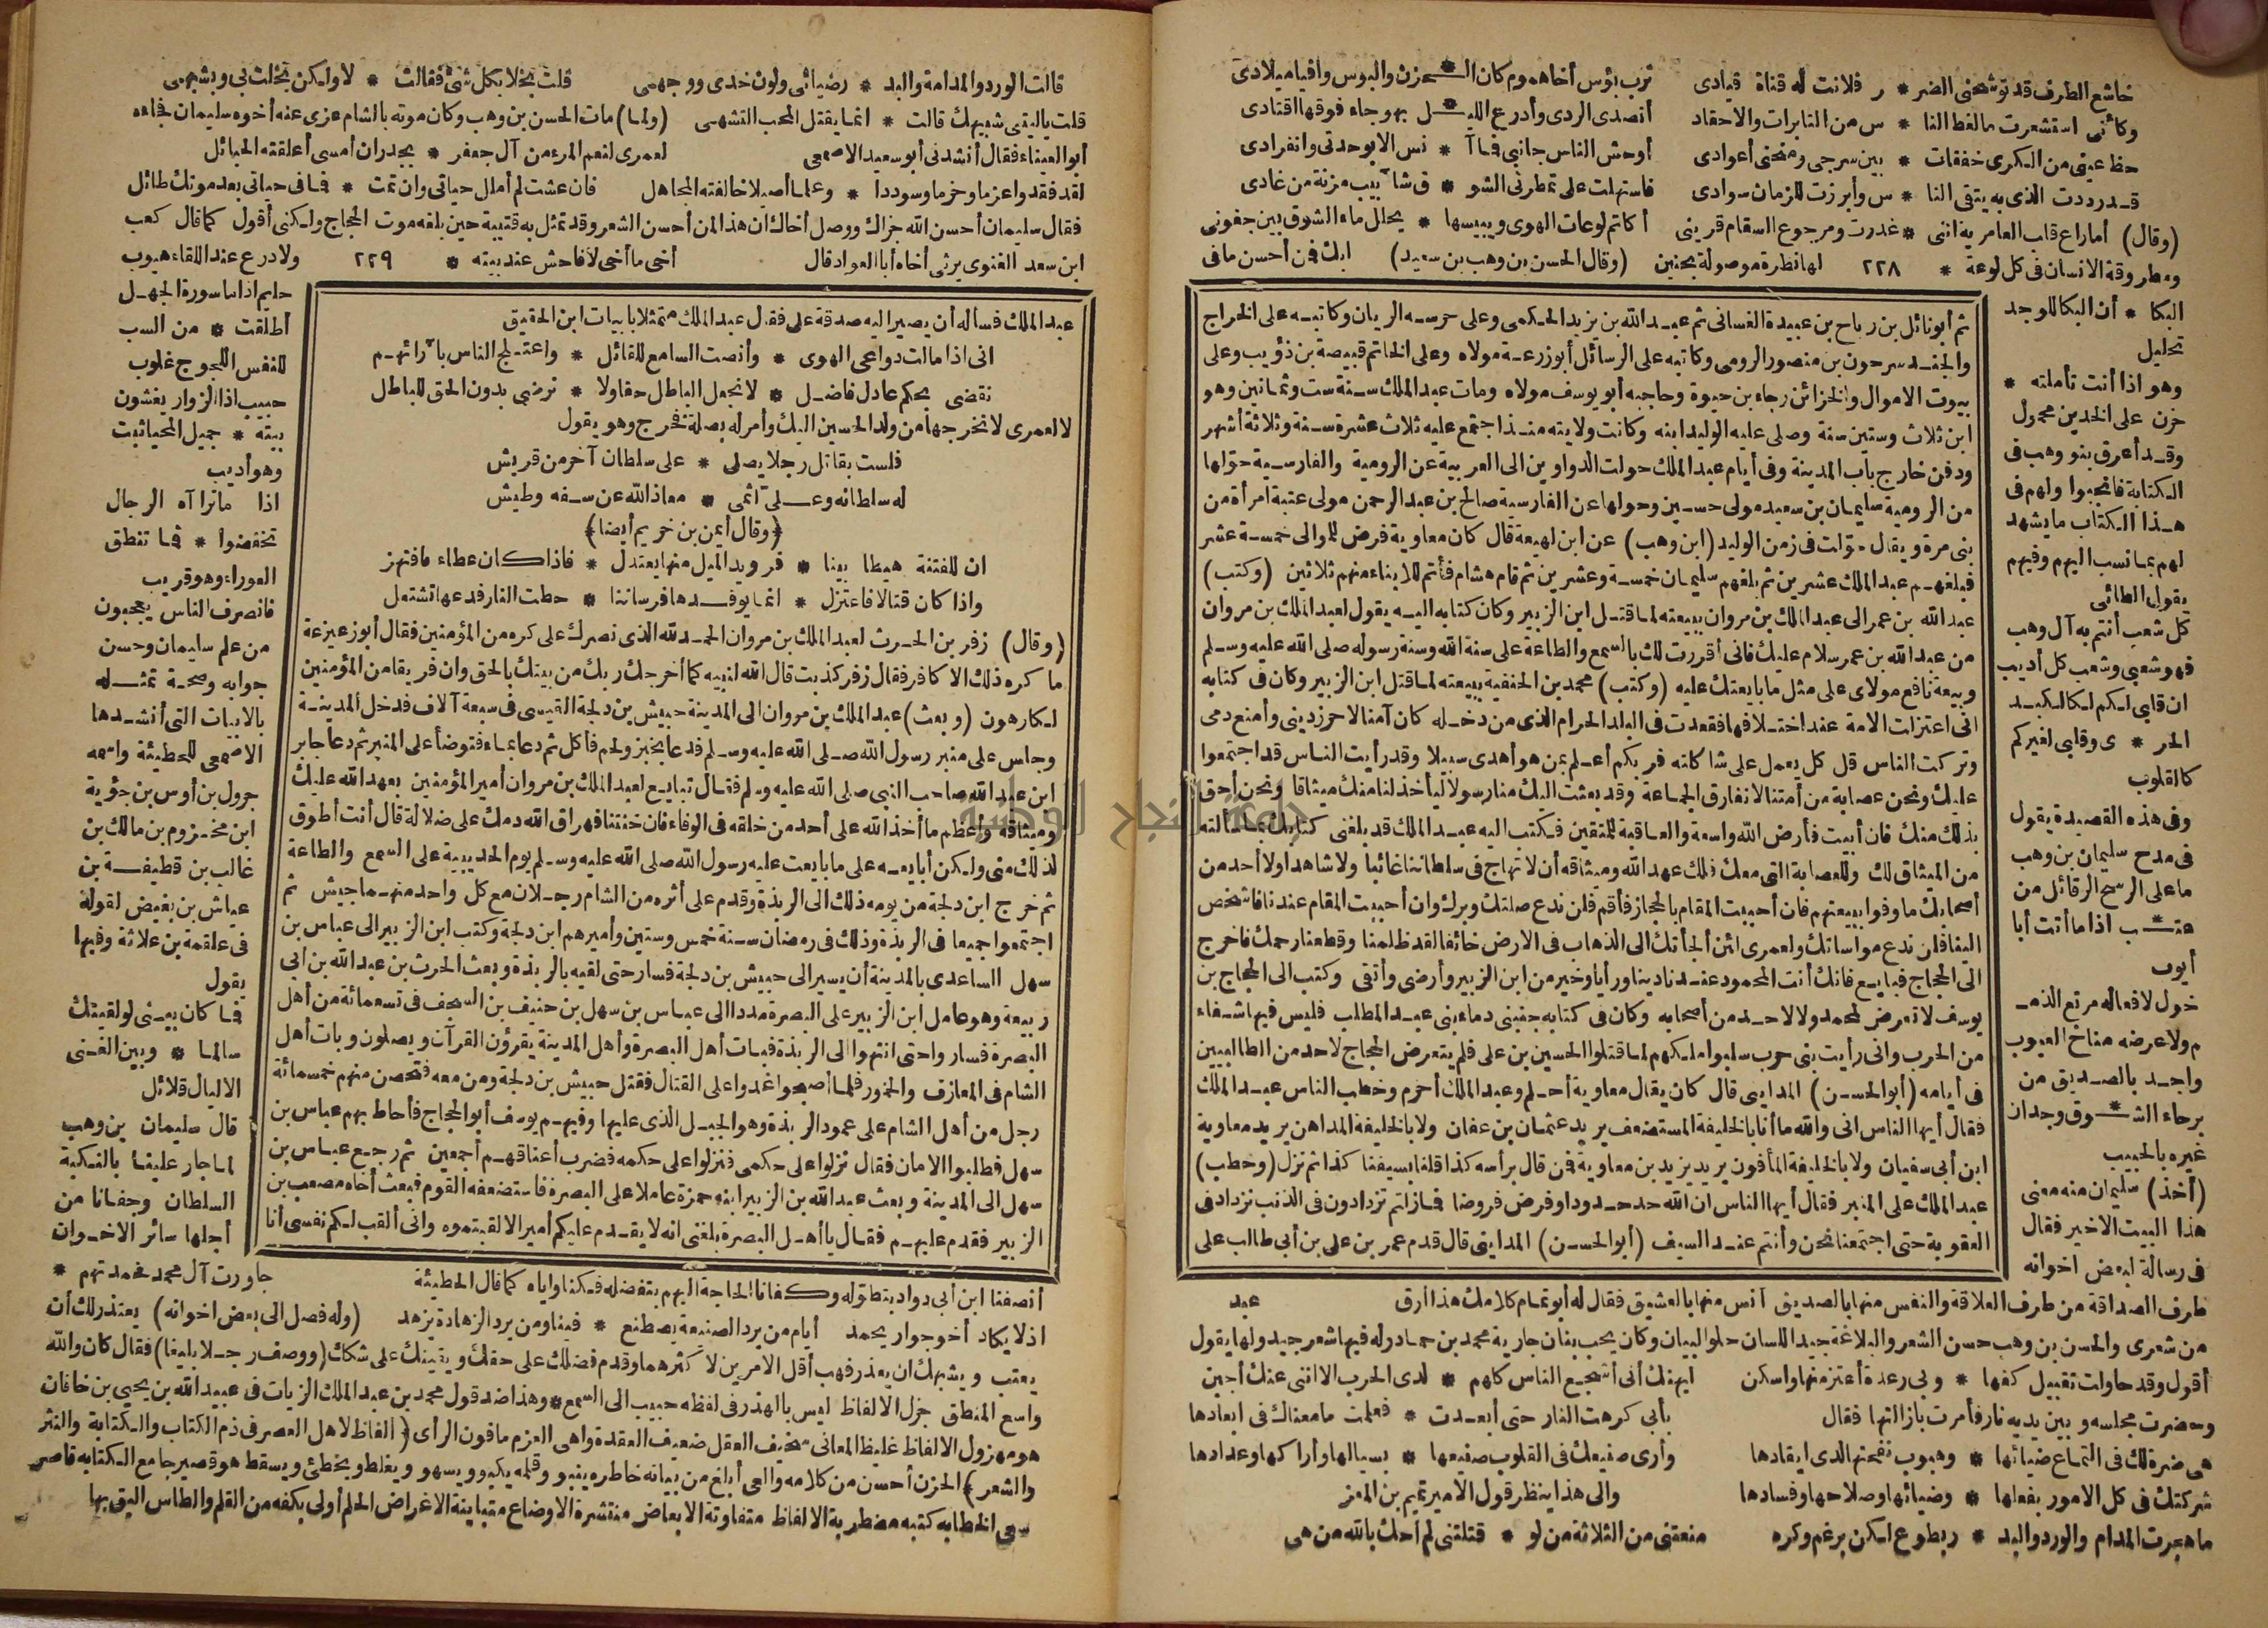 خاشع الطرف قد توشحنى الضر * ر فلانت له قناة قيادى
ترب بؤس أخا هموم كان الحزن والبوس وافيا ميلادى
وكأنى استشعرت مالفظ النا * س من النابرات والاحقاد
أتصدى الردى وأدرع الليـل بهوجاء فوقها اقتادى
حظ عينى من الكرى خفقات * بين سرجى ومنحنى أعوادى
أوحش الناس جانبى فما آ * نس الا بوحدتى وانفرادى
قد رددت الذى به يتقى النا * س وأبرزت للزمان سوادى
فاستهلت على تمطرنى الشو * ق شآبيب مزنة من غادى
(وقال) أما راع قلب العامرية اننى * غدرت ومرجوع السقام قرينى
أكاتم لوعات الهوى ويبيسها * يخلل ماء الشوق بين جفونى
ومطروقة الانسان فى كل لوعة * لها نظرة موصولة بحنين
٢٢٨
(وقال الحسن بن وهب بن سعيد) ابك فمن أحسن ما فى
البكا * أن البكا للوجد
تحليل
وهو اذا أنت تأملته *
حزن على الخدين محمول
وقد أعرق بنو وهب فى
الكتابة فانجبوا ولهم فى
هذا الكتاب ما يشهد
لهم بما نسب اليهم وفيهم
يقول الطائى
كل شعب أنتم به آل وهب
فهو شعبى وشعب كل أديب
ان قلبى لكم لكالكبد
الحر * ى وقلبى لغيركم
كالقلوب
وفى هذه القصيدة يقول
فى مدح سليمان بن وهب
ما على الرسج الرقائل من
عتب اذا ما أتت أبا
أيوب
حول لا فعاله مرتع الذم
م ولا عرضه مناخ العيوب
واجد بالصديق من
برحاء الشوق وجدان
غيره بالحبيب
(أخذ) سليمان منه معنى
هذا البيت الاخير فقال
فى رسالة لبعض اخوانه
ثم أبو نائل بن رباح بن عبيدة الغسانى ثم عبد الله بن يزيد الحكمى وعلى حرسه الريان وكاتبه على الخراج
والجند سرحون بن منصور الرومى وكاتبه على الرسائل أبو زرعة مولاه وعلى الخاتم قبيصة بن ذؤيب وعلى
بيوت الاموال والخزائن رجاء بن حيوة وحاجبه أبو يوسف مولاه ومات عبد الملك سنة ست وثمانين وهو
ابن ثلاث وستين سنة وصلى عليه الوليد ابنه وكانت ولايته منذ اجتمع عليه ثلاث عشرة سنة وثلاثة أشهر
ودفن خارج باب المدينة وفى أيام عبد الملك حولت الدواوين الى العربية عن الرومية والفارسية حولها
من الرومية سليمان بن سعيد مولى حسين وحولها عن الفارسية صالح بن عبد الرحمن مولى عتبة امرأة من
بنى مرة ويقال حولت فى زمن الوليد (ابن وهب) عن ابن لهيعة قال كان معاوية فرض للموالى خمسة عشر
فبلغهم عبد الملك عشرين ثم بلغهم سليمان خمسة وعشرين ثم قام هشام فأتم للابناء منهم ثلاثين (وكتب)
عبد الله بن عمر الى عبد الملك بن مروان ببيعته لما قتل ابن الزبير وكان كتابه اليه يقول لعبد الملك بن مروان
من عبد الله بن عمر سلام عليك فانى أقررت لك بالسمع والطاعة على سنة الله وسنة رسوله صلى الله عليه وسلم
وبيعة نافع مولاى على مثل ما بايعتك عليه (وكتب) محمد بن الحنفية ببيعته لما قتل ابن الزبير وكان فى كتابه
انى اعتزلت الامة عند اختلافها فقعدت فى البلد الحرام الذى من دخله كان آمنا لاحرز دينى وأمنع دمى
وتركت الناس قل كل يعمل على شاكلته فربكم أعلم بمن هو أهدى سبيلا وقد رأيت الناس قد اجتمعوا
عليك ونحن عصابة من أمتنا لا نفارق الجماعة وقد بعثت اليك منا رسولا ليأخذ لنا منك ميثاقا ونحن أحق
بذلك منك فان أبيت فأرض الله واسعة والعاقبة للمتقين فكتب اليه عبد الملك قد بلغنى كتابك بما سألته
من الميثاق لك وللعصابة التى معك فلك عهد الله وميثاقه أن لا تهاج فى سلطاننا غائبا ولا شاهدا ولا أحد من
أصحابك ما وفوا ببيعتهم فان أحببت المقام بالحجاز فأقم فلن ندع صلتك وبرك وان أحببت المقام عندنا فاشخص
الينا فلن ندع مواساتك ولعمرى لئن ألجأتك الى الذهاب فى الارض خائفا لقد ظلمنا وقطعنا رحمك فاخرج
الى الحجاج فبايع فانك أنت المحمود عندنا دينا ورأيا وخير من ابن الزبير وأرضى وأتقى وكتب الى الحجاج بن
يوسف لا تعرض لمحمد ولا لاحد من أصحابه وكان فى كتابه جنبنى دماء بنى عبد المطلب فليس فيها شفاء
من الحرب وانى رأيت بنى حرب سلبوا ملكهم لما قتلوا الحسين بن على فلم يتعرض الحجاج لاحد من الطالبيين
فى أيامه (أبو الحسن) المداينى قال كان يقال معاوية أحلم وعبد الملك أحزم وخطب الناس عبد الملك
فقال أيها الناس انى والله ما أنا بالخليفة المستضعف يريد عثمان بن عفان ولا بالخليفة المداهن يريد معاوية
ابن أبى سفيان ولا بالخليفة المأفون يريد يزيد بن معاوية فمن قال برأسه كذا قلنا بسيفنا كذا ثم نزل (وخطب)
عبد الملك على المنبر فقال أيها الناس ان الله حد حدودا وفرض فروضا فما زلتم تزدادون فى الذنب نزداد فى
العقوبة حتى اجتمعنا نحن وأنتم عند السيف (أبو الحسن) المداينى قال قدم عمر بن على بن أبى طالب على
طرف الصداقة من طرف العلاقة والنفس منها بالصديق آنس منها بالعشيق فقال له أبو تمام كلامك هذا أرق
عبد
من شعرى والحسن بن وهب حسن الشعر والبلاغة جيد اللسان حلو البيان وكان يحب بنان جارية محمد بن حماد وله فيها شعر جيد ولها يقول
أقول وقد حاولت تقبيل كفها * وبى رعدة أهتز منها واسكن
ليهنك أنى أشجع الناس كلهم * لدى الحرب الا اننى عنك أجبن
وحضرت مجلسه وبين يديه نار فأمرت بازالتها فقال
بأبى كرهت النار حتى أبعدت * فعلمت ما معناك فى ابعادها
هى ضرة لك فى التماع ضيائها * وهبوب نفحتها لدى ايقادها
وأرى صنيعك فى القلوب صنيعها * بسيالها وأراكها وعدادها
شركتك فى كل الامور بفعلها * وضيائها وصلاحها وفسادها
والى هذا ينظر قول الامير تميم بن المعز
ما هجرت المدام والورد والبد * ر بطوع لكن برغم وكره
منعتنى من الثلاثة من لو * قتلتنى لم أحك بالله من هى
قالت الورد والمدامة والبد * رضيائى ولون خدى ووجهى
قلت بخلا بكل شئ فقالت * لا ولكن بخلت بى وبشبهى
قلت ياليتنى شبيهك قالت * انما يقتل المحب التشهى
(ولما) مات الحسن بن وهب وكان موته بالشام عزى عنه أخوه سليمان فجاءه
أبو العيناء فقال أنشدنى أبو سعيد الاصمعى
لعمرى لنعم المرء من آل جعفر * بجدران أمسى أعلقته الحبائل
لقد فقدوا عزما وحزما وسوددا * وعلما أصيلا خالفته المجاهل
فان عشت لم أملل حياتى وان تمت * فما فى حياتى بعد موتك طائل
فقال سليمان أحسن الله جزاك ووصل أخاك ان هذا لمن أحسن الشعر وقد تمثل به قتيبة حين بلغه موت الحجاج ولكنى أقول كما قال كعب
ابن سعد الغنوى يرثى أخاه أبا العواد قال
أخى ما أخى لا فاحش عند بيته * ولا درع عند اللقاء هيوب
٢٢٩
حليم اذا ما سورة الجهل
أطلقت * من السب
للنفس اللجوج غلوب
حبيب اذا الزوار يغشون
بيته * جميل المحيا ثيت
وهو أديب
اذا ما تراآه الرجال
تحفضوا * فما تنطق
العوراء وهو قريب
فانصرف الناس يعجبون
من علم سليمان وحسن
جوابه وصحة تمثله
بالابيات التى أنشدها
الاصمعى للحطيئة واسمه
جرول بن أوس بن جؤية
ابن مخزوم بن مالك بن
غالب بن قطيفة بن
عباس بن بغيض لقوله
فى علقمة بن علاثة وفيها
يقول
فما كان بينى لو لقيتك
سالما * وبين الغنى
الا ليال قلائل
قال سليمان بن وهب
لما جار علينا بالنكبة
السلطان وجفانا من
أجلها سائر الاخوان
عبد الملك فسأله أن يصير اليه صدقة على فقال عبد الملك متمثلا بابيات ابن الحقيق
انى اذا مالت دواعى الهوى * وأنصت السامع للقائل * واعتلج الناس بآرائهم
نقضى بحكم عادل فاضل * لا نجعل الباطل حقا ولا * نرضى بدون الحق للباطل
لا لعمرى لا نخرجها من ولد الحسين اليك وأمر له بصلة فخرج وهو يقول
فلست بقائل رجلا يصلى * على سلطان آخر من قريش
له سلطانه وعلى اثمى * معاذ الله عن سفه وطيش
(وقال أيمن بن خريم أيضا)
ان للفتنة هيطا بينا * فرويد الميل منها يعتدل * فاذا كان عطاء فانتهز
واذا كان قتالا فاعتزل * انما يوقدها فرساننا * حطب النار فدعها تشتعل
(وقال) زفر بن الحرث لعبد الملك بن مروان الحمد لله الذى نصرك على كره من المؤمنين فقال أبو زعيزعة
ما كره ذلك الا كافر فقال زفر كذبت قال الله لنبيه كما أخرجك ربك من بيتك بالحق وان فريقا من المؤمنين
لكارهون (وبعث) عبد الملك بن مروان الى المدينة حبيش بن دلجة القيسى فى سبعة آلاف فدخل المدينة
وجلس على منبر رسول الله صلى الله عليه وسلم فدعا بخبز ولحم فأكل ثم دعا بماء فتوضأ على المنبر ثم دعا جابر
ابن عبد الله صاحب النبى صلى الله عليه وسلم فقال تبايع لعبد الملك بن مروان أمير المؤمنين بعهد الله عليك
وميثاقه وأعظم ما أخذ الله على أحد من خلقه فى الوفاء فان خنتنا فهراق الله دمك على ضلالة قال أنت أطوق
لذلك منى ولكن أبايعه على ما بايعت عليه رسول الله صلى الله عليه وسلم يوم الحديبية على السمع والطاعة
ثم خرج ابن دلجة من يومه ذلك الى الربذة وقدم على أثره من الشام رجلان مع كل واحد منهما جيش ثم
اجتمعوا جميعا فى الربذة وذلك فى رمضان سنة خمس وستين وأميرهم ابن دلجة وكتب ابن الزبير الى عباس بن
سهل الساعدى بالمدينة أن يسير الى حبيش بن دلجة فسار حتى لقيه بالربذة وبعث الحرث بن عبد الله بن أبى
ربيعة وهو عامل ابن الزبير على البصرة مددا الى عباس بن سهل بن حنيف بن السجف فى تسعمائة من أهل
البصرة فساروا حتى انتهوا الى الربذة فبات أهل البصرة وأهل المدينة يقرؤن القرآن ويصلون وبات أهل
الشام فى المعازف والخمور فلما أصبحوا غدوا على القتال فقتل حبيش بن دلجة ومن معه فتحصن منهم خمسمائة
رجل من أهل الشام على عمود الربذة وهو الجبل الذى عليها وفيهم يوسف أبو الحجاج فأحاط بهم عباس بن
سهل فطلبوا الامان فقال نزلوا على حكمى فنزلوا على حكمه فضرب أعناقهم أجمعين ثم رجع عباس بن
سهل الى المدينة وبعث عبد الله بن الزبير ابنه حمزة عاملا على البصرة فاستضعفه القوم فبعث أخاه مصعب بن
الزبير فقدم عليهم فقال يا أهل البصرة بلغنى انه لا يقدم عليكم أمير الا لقبتموه وانى ألقب لكم نفسى أنا
أنصفنا ابن أبى دواد بتطوله وكفانا الحاجة اليهم بتفضله فكنا واياه كما قال الحطيئة
جاورت آل محمد فحمدتهم *
اذ لا يكاد أخو جوار يحمد
أيام من يرد الصنيعة يصطنع * فينا ومن يرد الزهادة يزهد
(وله فصل الى بعض اخوانه) يعتذر لك أن
يعتب ويشبهك ان يعذر فهب أقل الامرين لا كثرهما وقدم فضلك على حقك ويقينك على شكك (ووصف رجلا بليغا) فقال كان والله
واسع المنطق جزل الالفاظ ليس بالهذر فى لفظه حبيب الى السمع * وهذا ضد قول محمد بن عبد الملك الزيات فى عبيد الله بن يحيى بن خاقان
هو مهزول الالفاظ غليظ المعانى سخيف العقل ضعيف العقدة واهى العزم مافون الرأى (ألفاظ لاهل العصر فى ذم الكتاب والكتابة والنثر
والشعر) الحزن أحسن من كلامه والعى أبلغ من بيانه خاطره ينبو وقلمه يكبو ويسهو ويغلط ويخطئ ويسقط هو قصير جامع الكتابه قاصر
سعى الخطابه كتبه مضطربة الالفاظ متفاوتة الابعاض منتشرة الاوضاع متباينة الاغراض الحلم أولى بكفه من القلم والطاس أليق بها
جامعة النجاح الوطنية